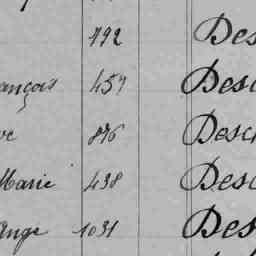 792 Des
ançois 459 Desc
ve 876 Desch
Marie 438 Desc
Ange 1031 Des